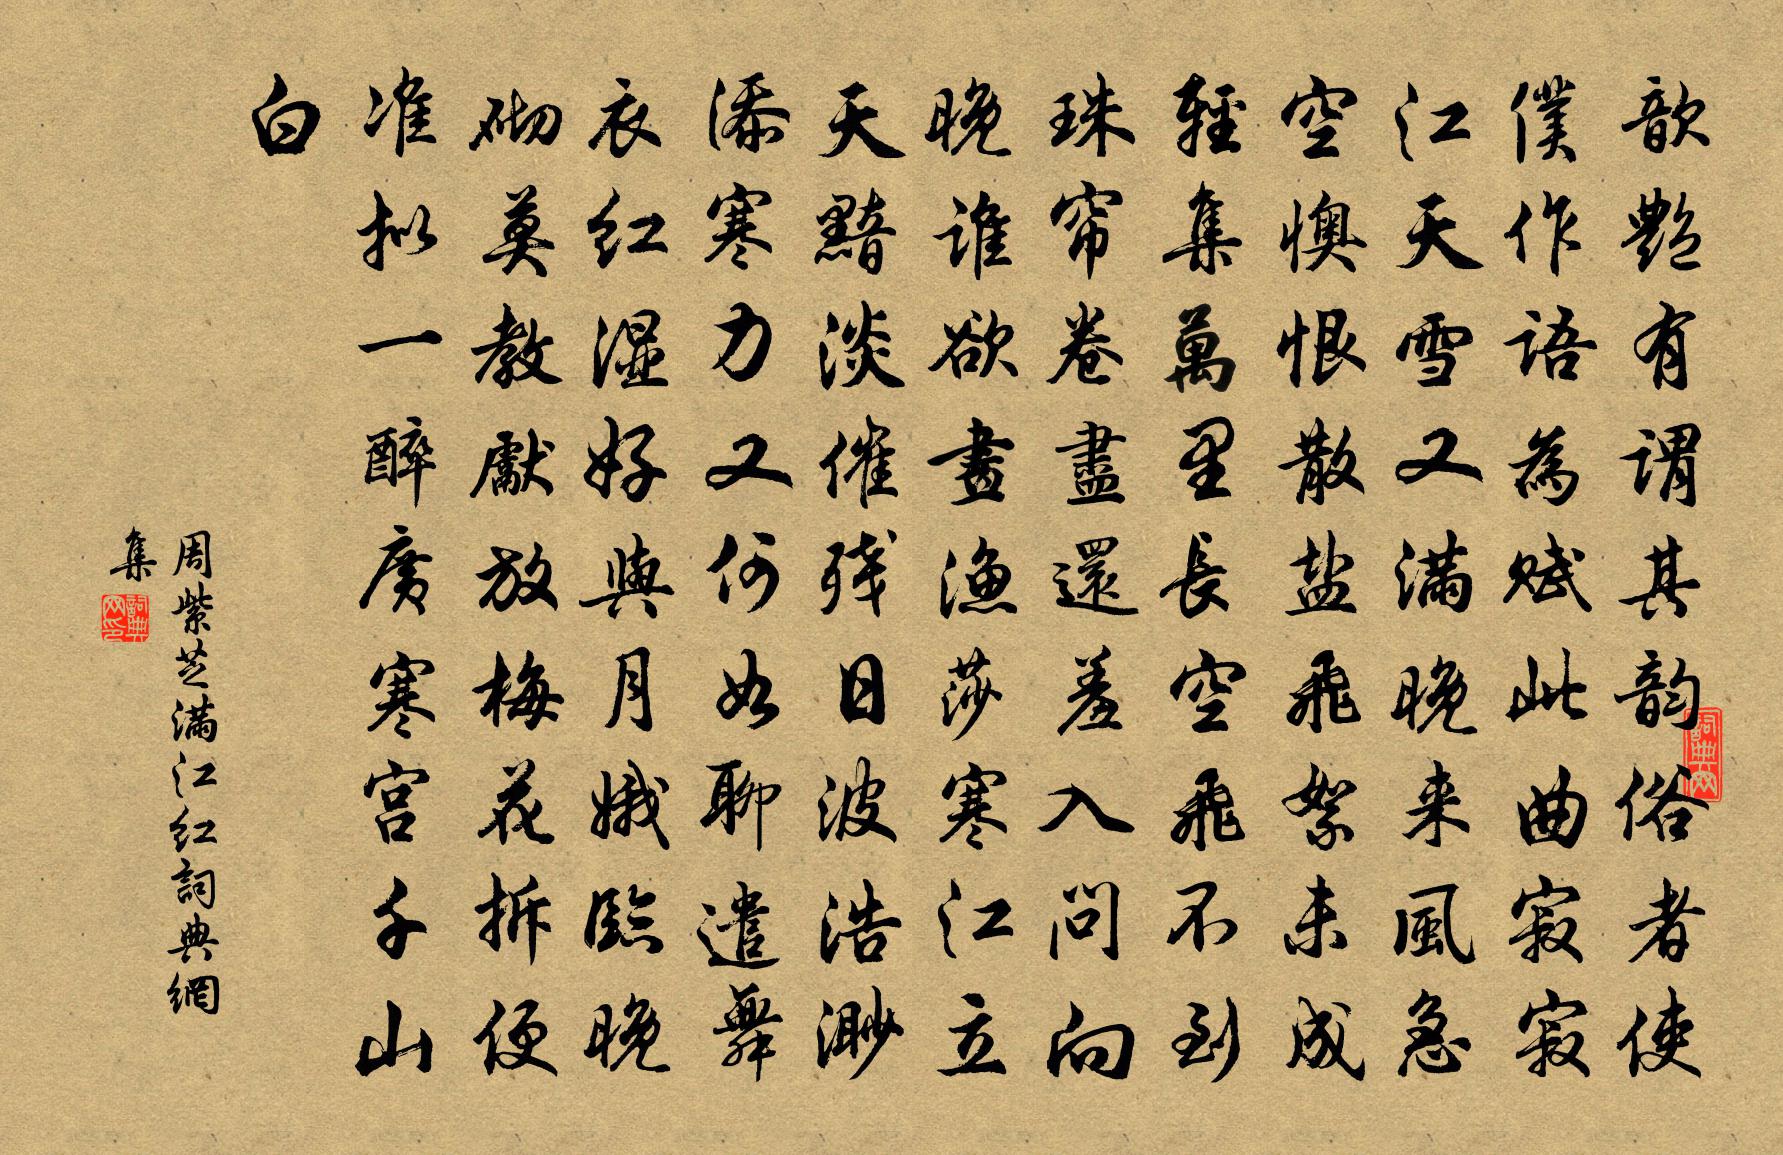 歆艷有謂其韵俗者使
僕作語為賦此曲寂寂
江天雪又滿晚来風急
空懊恨散盐飛絮未成
輕集萬里長空飛不到
珠帘卷盡還羞入問向
晚誰欲畫漁莎寒江立
天黯淡催残日波浩渺
添寒力又何如聊遣舞
衣红湿好與月娥臨晚
砌莫教獻放梅花拆便
准拟一醉廣寒宫千山
白
周紫芝满江红詞典網
集
詞典网印
詞典网